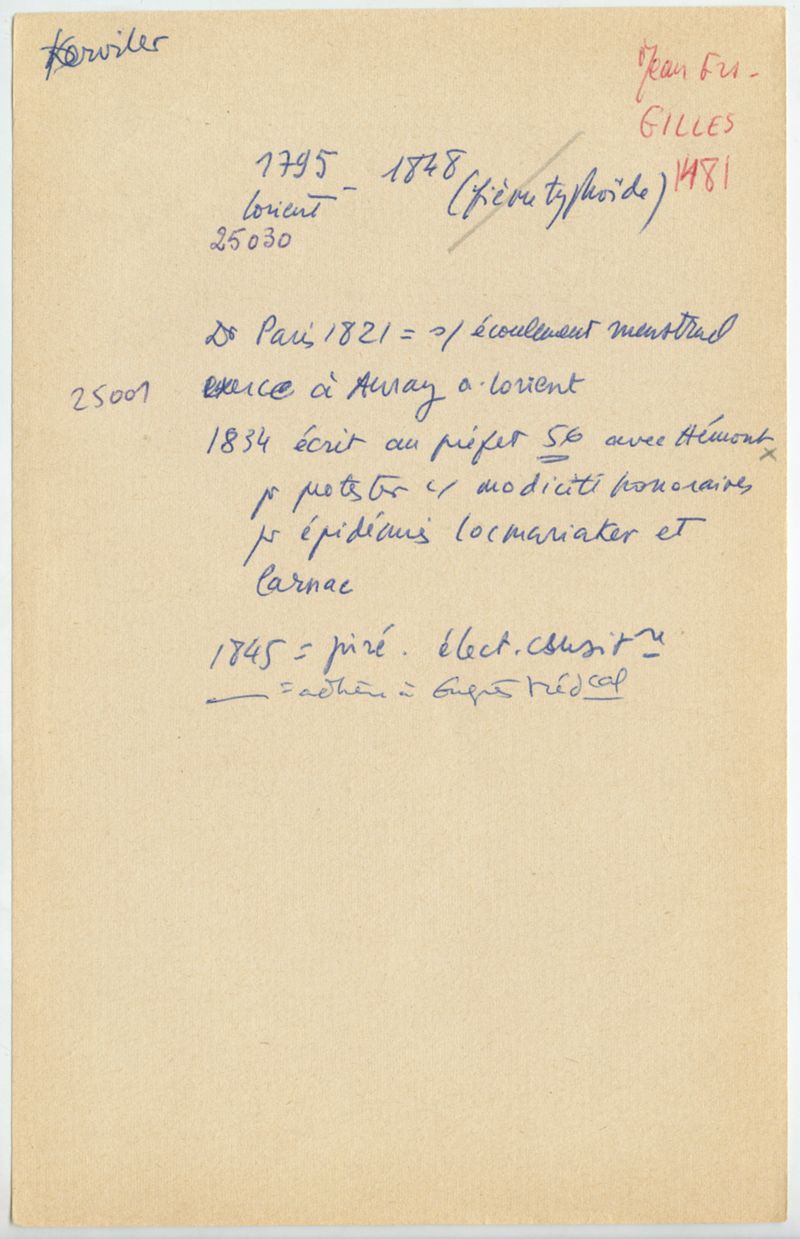 Kerviler
Jean Frs-
GILLES
1481
1795 - 1848 (fièvre typhoïde)
Lorient
25030
Dr Paris 1821 = s/ écoulement menstruel
25001 exerce à Auray o. Lorient
1834 écrit au préfet 56 avec Hémont x
pr protester c/ modicité honoraires
pr épidémies Locmariaker et
Carnac
1845 = électr.
= adhère à Congrès Médcal